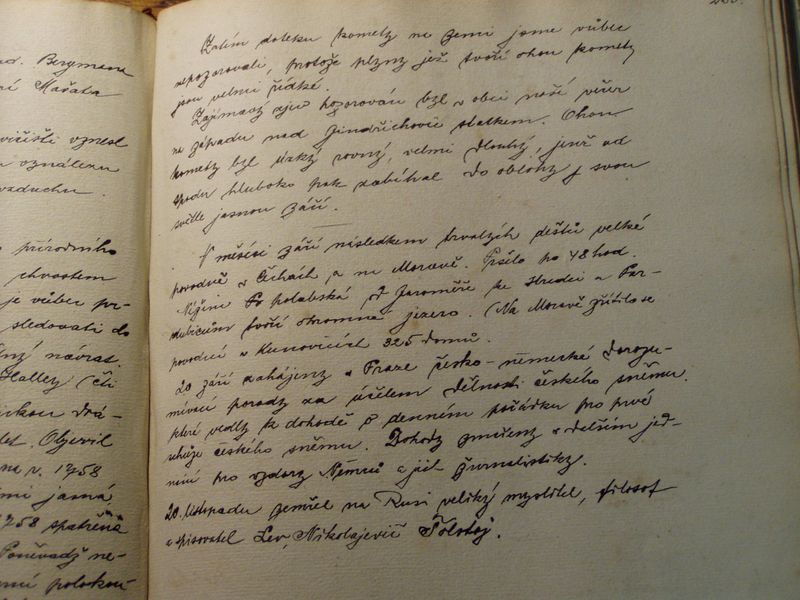 ad. Bergmana
ní Mařata
višti vznesl
vználezu
vzduchu.
přírodního
chvostem
je vůbec po-
sledovati do
ný návrat
Halley (čti
ickou drá-
let. Objevil
na v. 1758
ími jasná
1758 spatřena
Poněvadž ne-
emí polokou
Zatím doteku komety na zemi jsme vůbec
nepozorovali, protože plzny jež tvoří ohon komety
jsou velmi řídké.
Zajímavý zjev pozorován byl v obci naší večer
na západu nad Jindřichovic statkem. Ohon
komety byl úzký rovný, velmi dlouhý, jenž od
spodu hluboko pak zabíhal do oblohy s svou
světle jasnou září.
V měsíci září následkem trvalých dešťů veliké
povodně v Čechách a na Moravě. Pršelo po 48 hod.
Nížina Popolabská od Jaroměře ke Hradci a Par-
dubicům tvoří ohromné jezero. (Na Moravě zřítilo se
povodní v Kunovicích 325 domů.
20 září zahájeny v Praze česko-německé dorozu-
mívací porady za účelem dělnosti českého sněmu.
které vedly k dohodě o denním pořádku pro prvé
schůze českého sněmu. Dohody zmařeny v dalším jed-
nání pro vzdory Němců a jich žurnalistiky.
20. listopadu zemřel na Rusi veliký myslitel, filosof
a spisovatel Lev Nikolajevič Tolstoj.